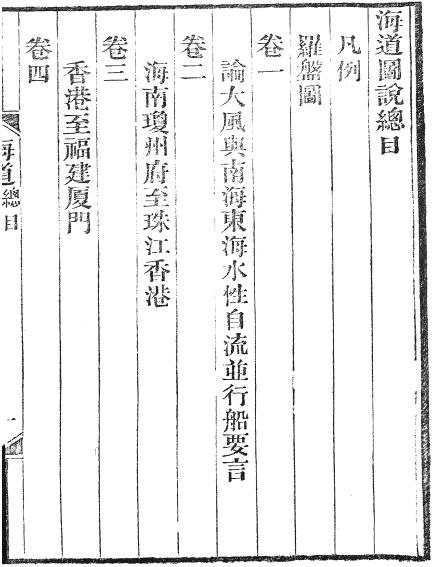 海道圖說總目
凡例
羅盤圖
卷一
論大風與南海東海水性自流並行船要言
卷二
海南瓊州府至珠江香港
卷三
香港至福建厦門
卷四
海道總目
一